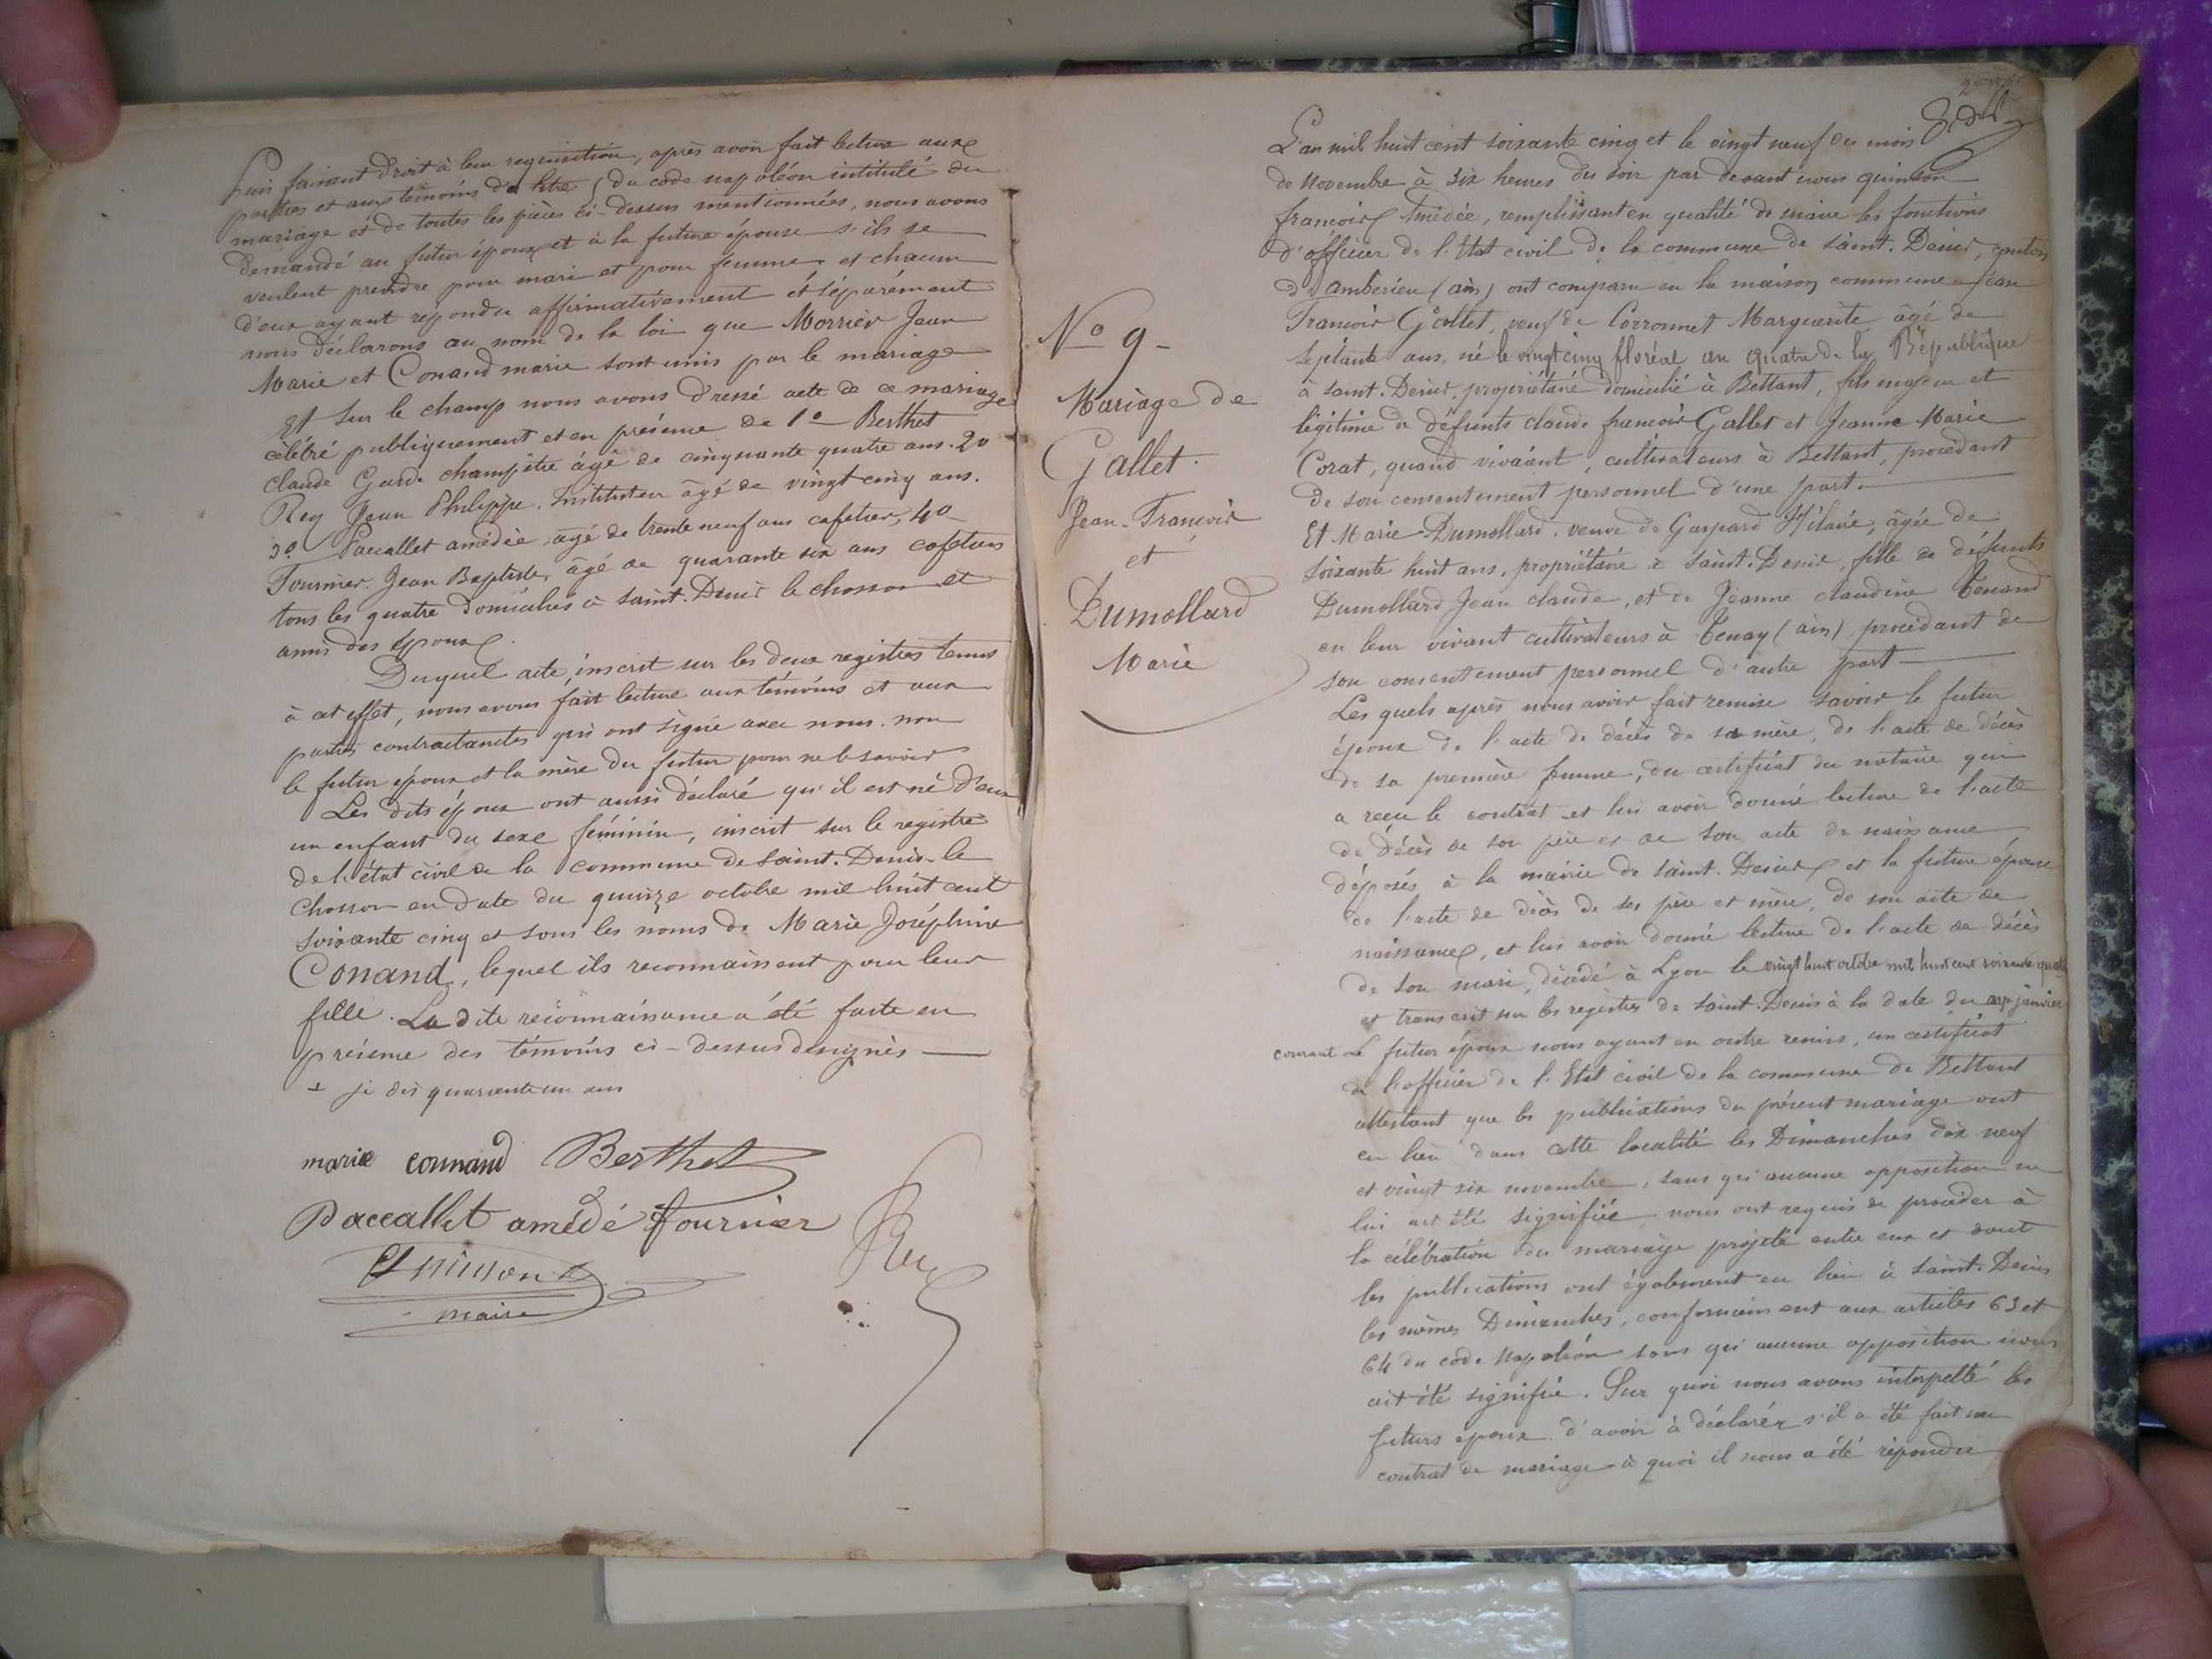 Puis faisant droit à leur requisition, après avoir fait lecture aux
parties et aux témoins du titre 5 du code napoléon intitulé du
mariage et de toutes les pièces ci-dessus mentionnées, nous avons
demandé au futur époux et à la future épouse s'ils se
veulent prendre pour mari et pour femme et chacun
d'eux ayant répondu affirmativement et séparément
nous déclarons au nom de la loi que Morrier Jean
Marie et Conand marie sont unis par le mariage
Et sur le champ nous avons dressé acte de ce mariage
célébré publiquement et en présence de 1º Berthet
claude Garde champêtre âgé de cinquante quatre ans. 2º
Rey Jean Philippe. Instituteur âgé de vingt cinq ans.
3º Paccallet amédée âgé de trente neuf ans cafetier, 4º
Fournier Jean Baptiste, âgé de quarante six ans cafetier
tous les quatre domiciliés à Saint. Denis le chosson et
amis des époux.
Duquel acte, inscrit sur les deux registres tenus
à cet effet, nous avons fait lecture aux témoins et aux
parties contractantes qui ont signé avec nous. non
le futur époux et la mère du futur pour ne le savoir
Les dits époux ont aussi déclaré qu'il est né d'eux
un enfant du sexe féminin, inscrit sur le registre
de l'état civil de la commune de Saint. Denis-le
Chosson en date du quinze octobre mil huit cent
soixante cinq et sous les noms de Marie Joséphine
Conand, lequel ils reconnaissent pour leur
fille. La dite reconnaissance a été faite en
présence des témoins ci-dessus designés
+ je dis quarante un ans
marie connand Berthet
Paccallet amédé fournier
Rey
Quinson
maire
Nº 9-
Mariage de
Gallet.
Jean-François
et
Dumollard
Marie
L'an mil huit cent soixante cinq et le vingt neuf du mois
de Novembre à six heures du soir par devant nous quinson
françois Amédée, remplissant en qualité de maire les fonctions
d'officier de l'Etat civil de la commune de Saint. Denis, canton
d'ambérieu (ain) ont comparu en la maison commune Jean
François Gallet, veuf de Corronnet Marguerite âgé de
septante ans, né le vingt cinq floréal an quatre de la République
à Saint. Denis, propriétaire domicilié à Bettant, fils majeur et
légitime de défunts claude françois Gallet et Jeanne Marie
Corat, quand vivaient, cultivateurs à Bettant, procédant
de son consentement personnel d'une part.
Et Marie Dumollard. veuve de Gaspard Hilaire, âgée de
soixante huit ans, propriétaire à Saint. Denis, fille de défunts
Dumollard Jean claude, et de Jeanne claudine Tenand
en leur vivant cultivateurs à Tenay (ain) procédant de
son consentement personnel d'autre part
Les quels après nous avoir fait remise savoir le futur
époux de l'acte de décès de sa mère, de l'acte de décès
de sa première femme, du certificat du notaire qui
a reçu le contrat et lui avoir donné lecture de l'acte
de décès de son père et de son acte de naissance
déposés à la mairie de Saint. Denis et la future épouse
de l'acte de décès de ses père et mère, de son acte de
naissance, et lui avoir donné lecture de l'acte de décès
de son mari, décédé à Lyon le vingt huit octobre mil huit cent soixante quatre
et transcrit sur les registres de Saint. Denis à la date du janvier
courant Le futur époux nous ayant en outre remis, un certificat
de l'officier de l'Etat civil de la commune de Bettant
attestant que les publications du présent mariage ont
eu lieu dans cette localité les Dimanches dix neuf
et vingt six novembre, sans qu'aucune opposition ne
lui ait été signifiée nous ont requis de procéder à
la célébration du mariage projeté entre eux et dont
les publications ont également eu lieu à Saint. Denis
les mêmes Dimanches, conformément aux articles 63 et
64 du code Napoléon sans qu'aucune opposition nous
ait été signifié. Sur quoi nous avons interpellé les
futurs époux d'avoir à déclarer s'il a été fait un
contrat de mariage à quoi il nous a été répondu